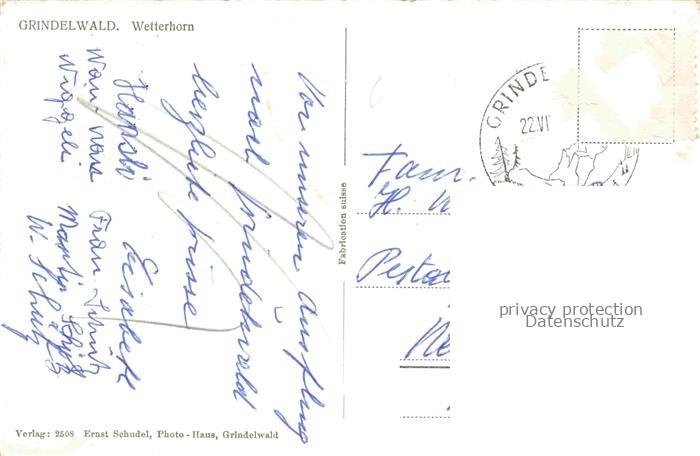 GRINDELWALD. Wetterhorn
Von unserem Ausflug
nach Grindelwald
herzliche Grüsse
Elisabeth
Hansli
Frau Schütz
Martin Schütz
W. Schütz
Fabrication suisse
GRINDE
22.VI
Fam.
H. W
Pesta
privacy protection
Datenschutz
Verlag: 2508 Ernst Schudel, Photo-Haus, Grindelwald